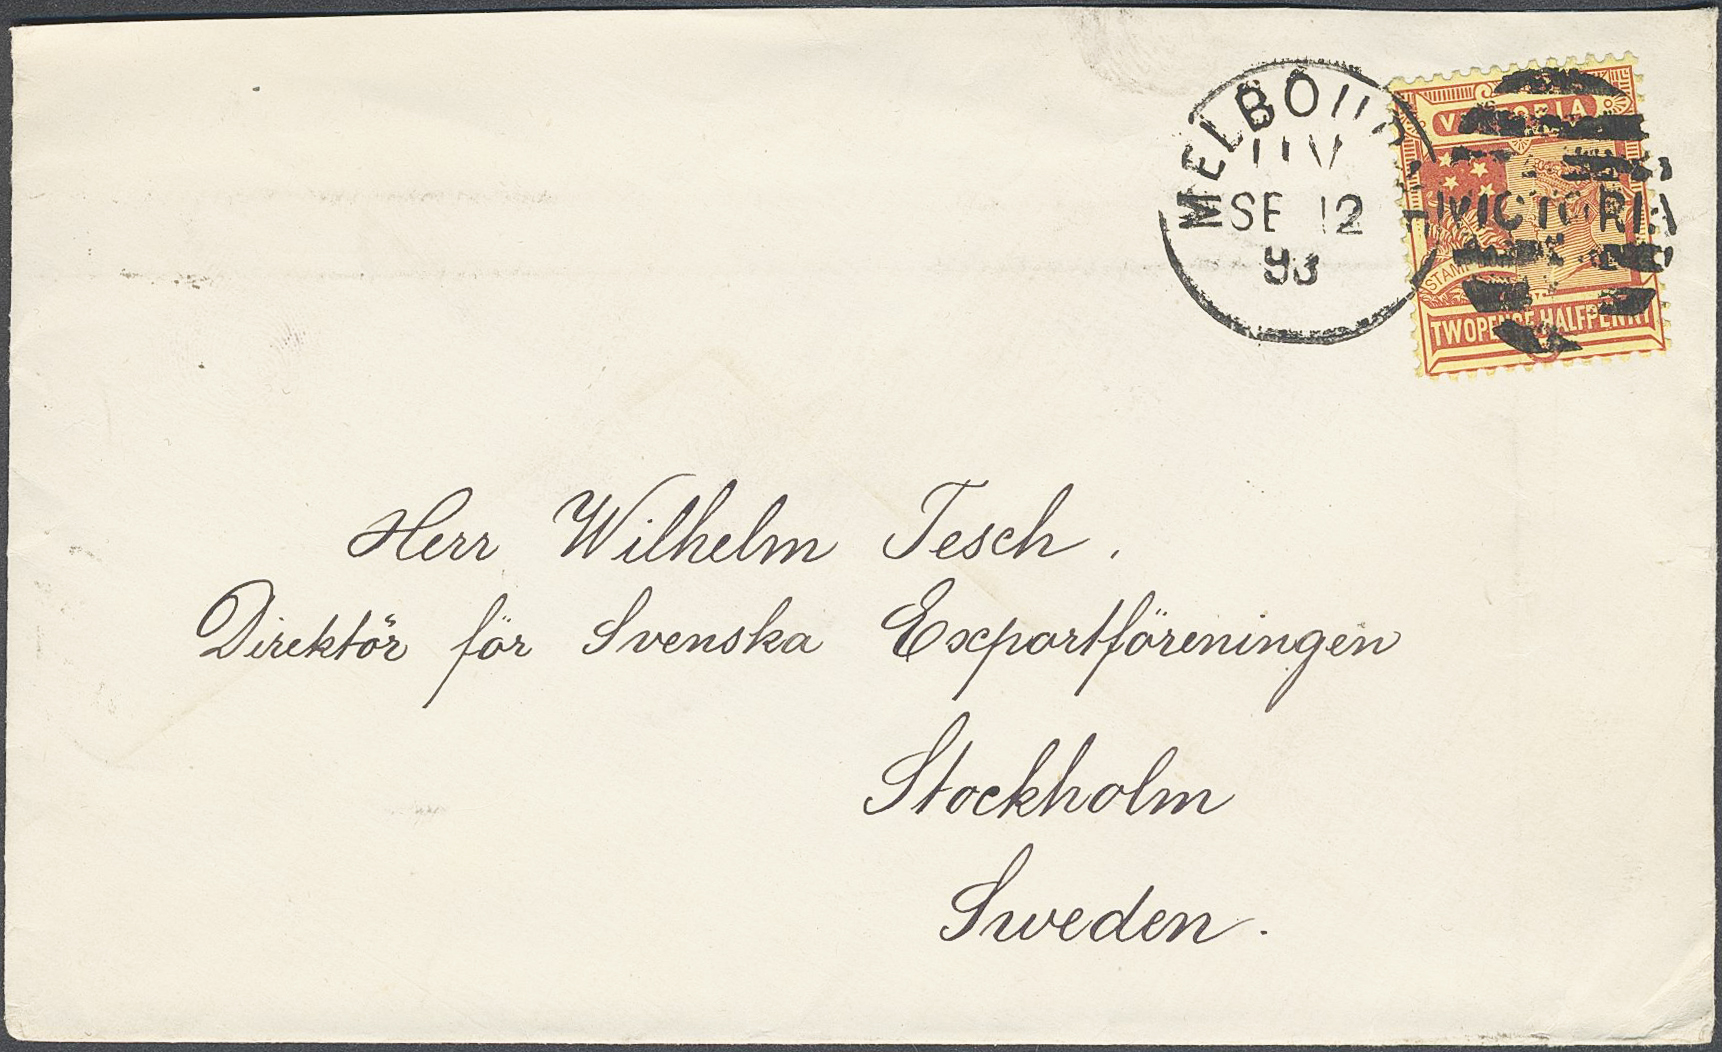 MELBOU
SE 12
93
VICTORIA
VICTORIA
STAMP
TWOPENCE HALFPENNY
Herr Wilhelm Tesch.
Direktör för Svenska Exportföreningen
Stockholm
Sweden.